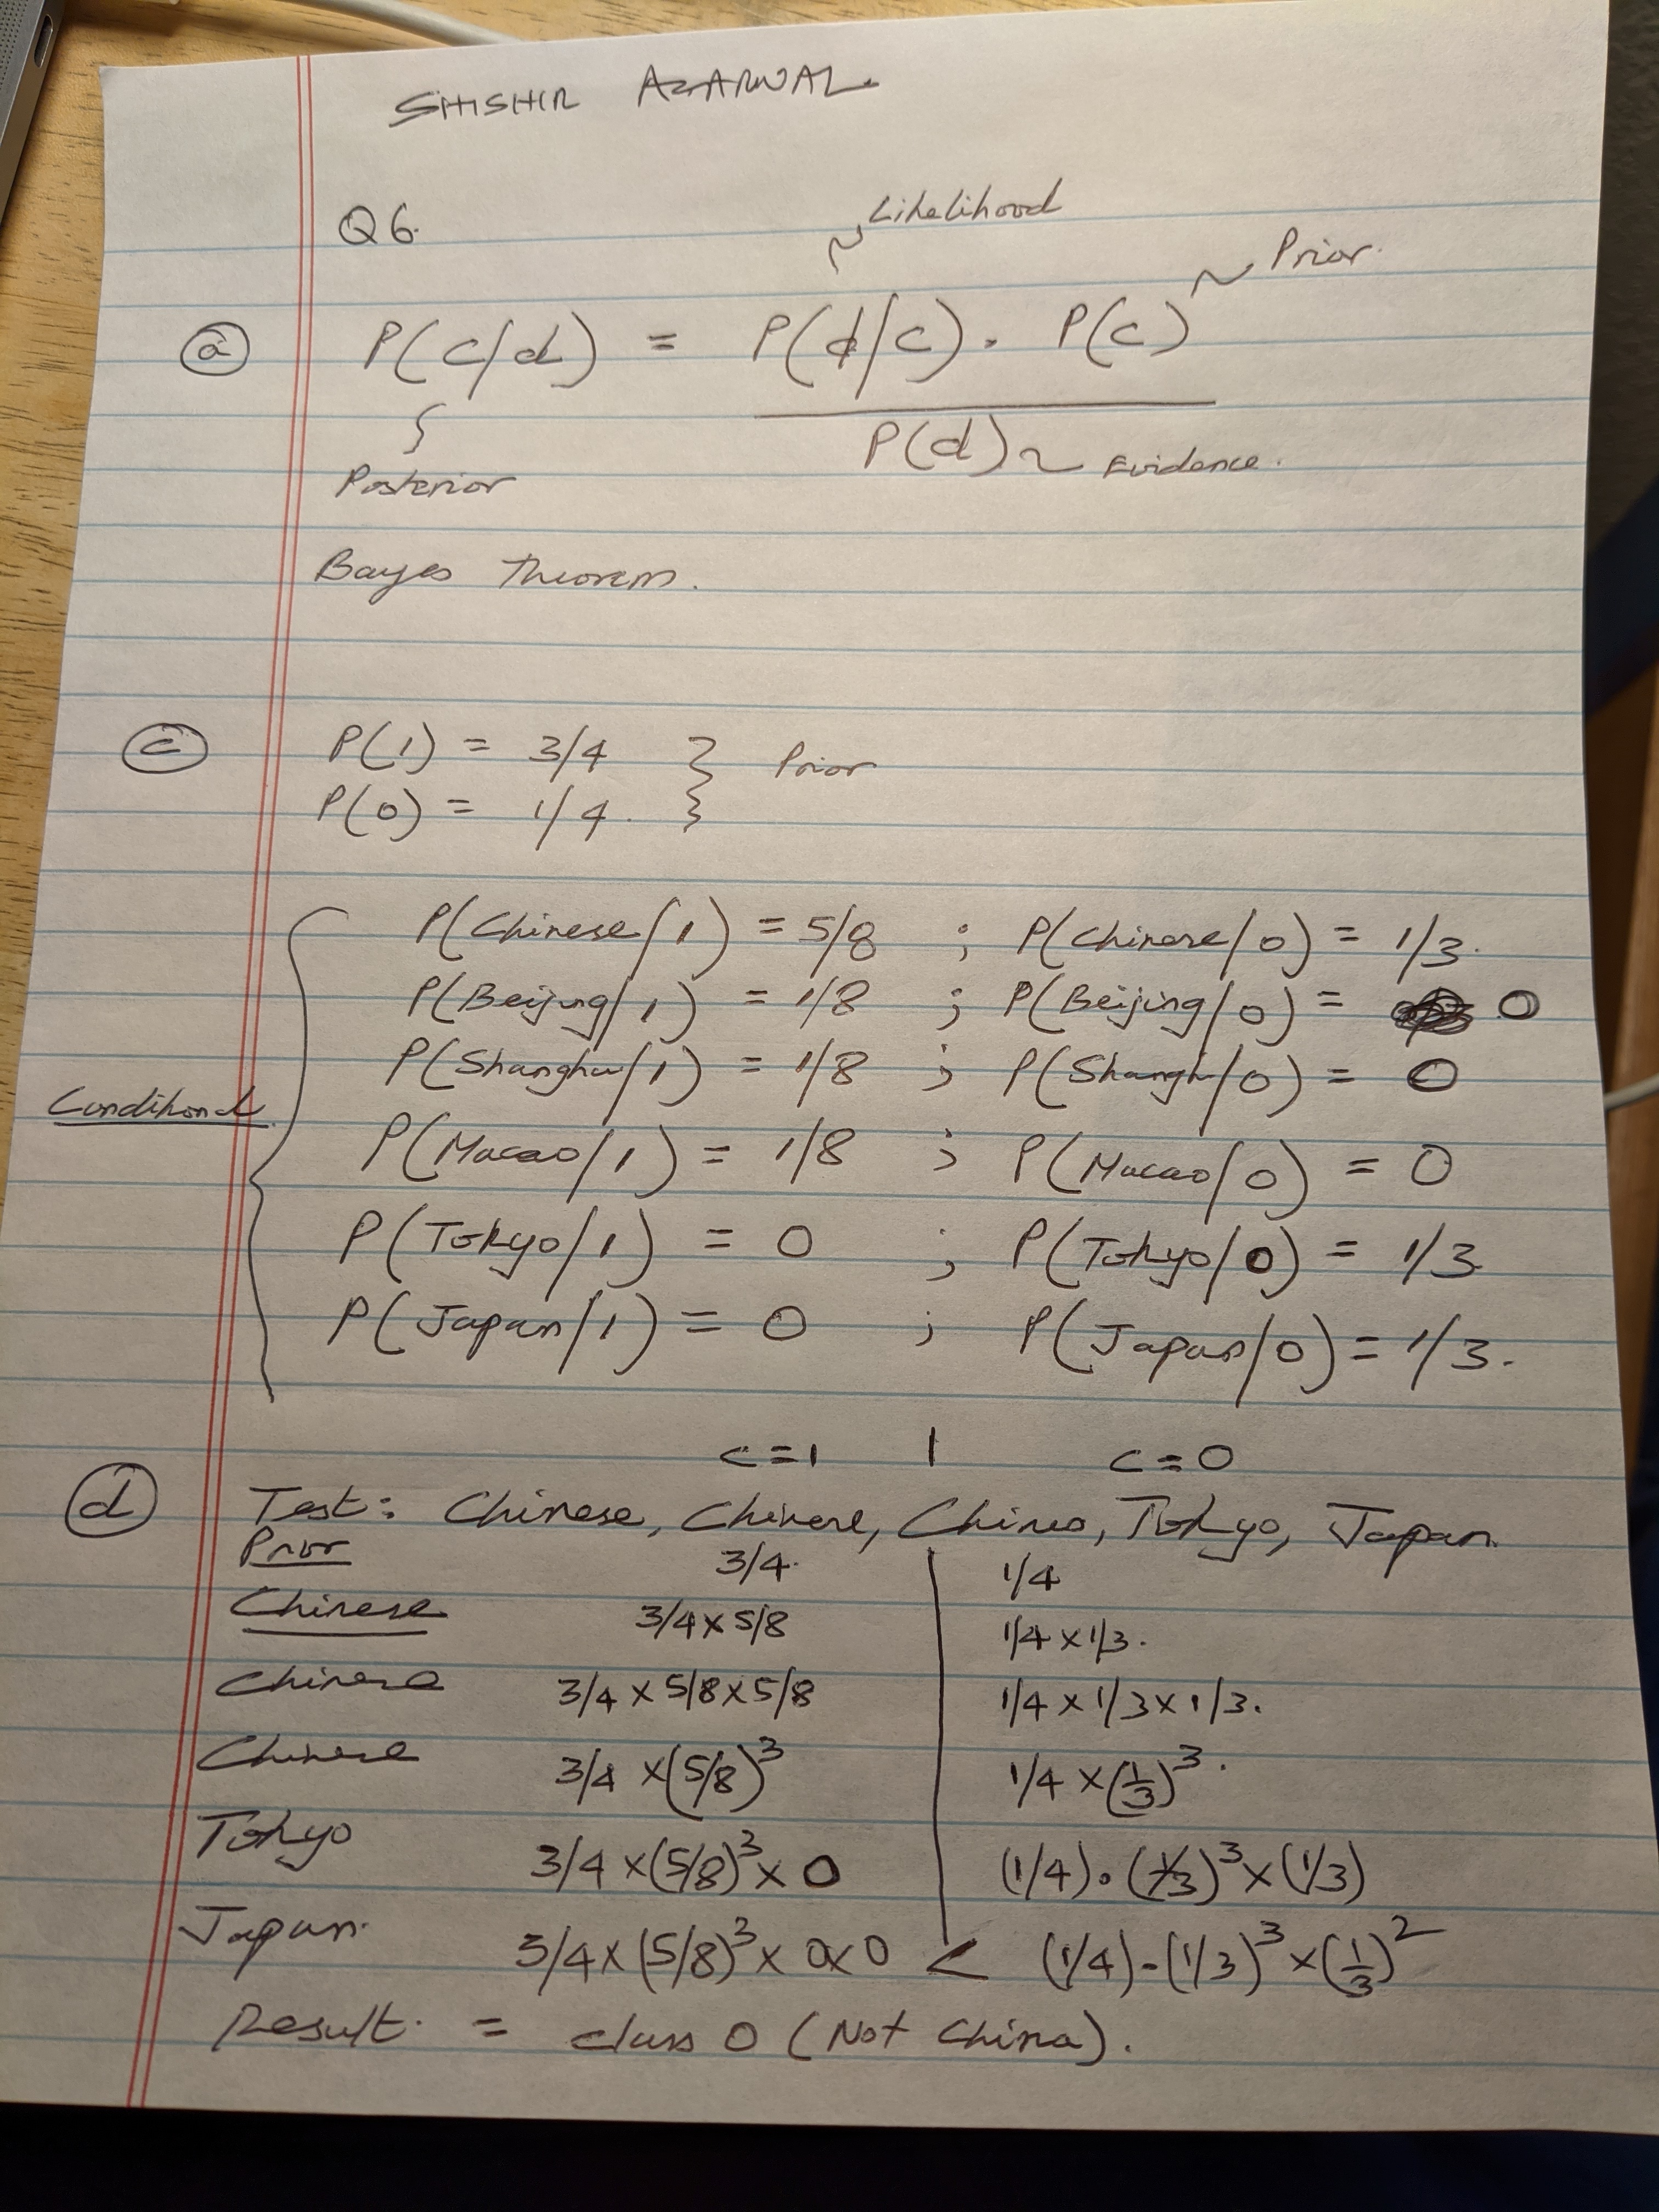 SHISHIR AGARWAL.
Q6.
Likelihood
Prior.
(a) P(c/d) = P(d/c) . P(c)
P(d) ~ Evidence.
Posterior
Bayes Theorem.
(c) P(1) = 3/4 } Prior
P(0) = 1/4 . }
P(Chinese/1) = 5/8 ; P(Chinese/0) = 1/3.
P(Beijing/1) = 1/8 ; P(Beijing/0) = 0
P(Shanghai/1) = 1/8 ; P(Shangh/0) = 0
Conditional
P(Macao/1) = 1/8 ; P(Macao/0) = 0
P(Tokyo/1) = 0 ; P(Tokyo/0) = 1/3
P(Japan/1) = 0 ; P(Japan/0) = 1/3.
c=1 | c=0
(d) Test: Chinese, Chinese, Chines, Tokyo, Japan.
Prior 3/4. 1/4
Chinese 3/4 x 5/8 1/4 x 1/3.
Chinese 3/4 x 5/8 x 5/8 1/4 x 1/3 x 1/3.
Chinese 3/4 x (5/8)³ 1/4 x (1/3)³.
Tokyo 3/4 x (5/8)³ x 0 (1/4) . (1/3)³ x (1/3)
Japan. 3/4 x (5/8)³ x 0x0 < (1/4) . (1/3)³ x (1/3)²
Result. = class 0 (Not China).